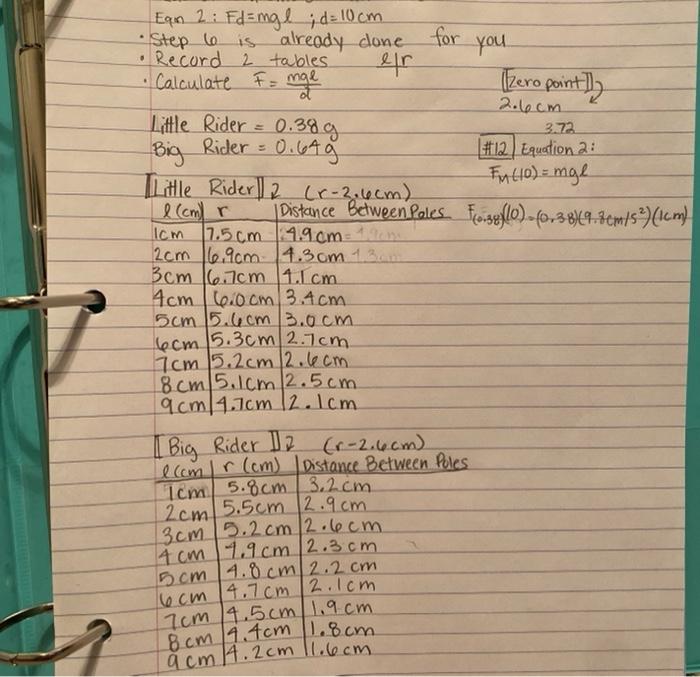 Eqn 2: Fd=mgl ; d=10cm
• Step 6 is already done for you
• Record 2 tables l/r
• Calculate F = mgl/d
[[Zero point]]
2.6cm
3.72
Little Rider = 0.38g
Big Rider = 0.64g
#12 Equation 2:
FM(10) = mgl
[[Little Rider]] 2 (r-2.6cm)
l (cm) r Distance Between Poles F(0.38)(10) = (0.38)(9.8cm/s²)(1cm)
1cm 7.5cm 4.9cm = 4.9cm
2cm 6.9cm 4.3cm 4.3cm
3cm 6.7cm 4.1cm
4cm 6.0cm 3.4cm
5cm 5.6cm 3.0cm
6cm 5.3cm 2.7cm
7cm 5.2cm 2.6cm
8cm 5.1cm 2.5cm
9cm 4.7cm 2.1cm
[[Big Rider]] 2 (r-2.6cm)
l (cm) r (cm) Distance Between Poles
1cm 5.8cm 3.2cm
2cm 5.5cm 2.9cm
3cm 5.2cm 2.6cm
4cm 4.9cm 2.3cm
5cm 4.8cm 2.2cm
6cm 4.7cm 2.1cm
7cm 4.5cm 1.9cm
8cm 4.4cm 1.8cm
9cm 4.2cm 1.6cm